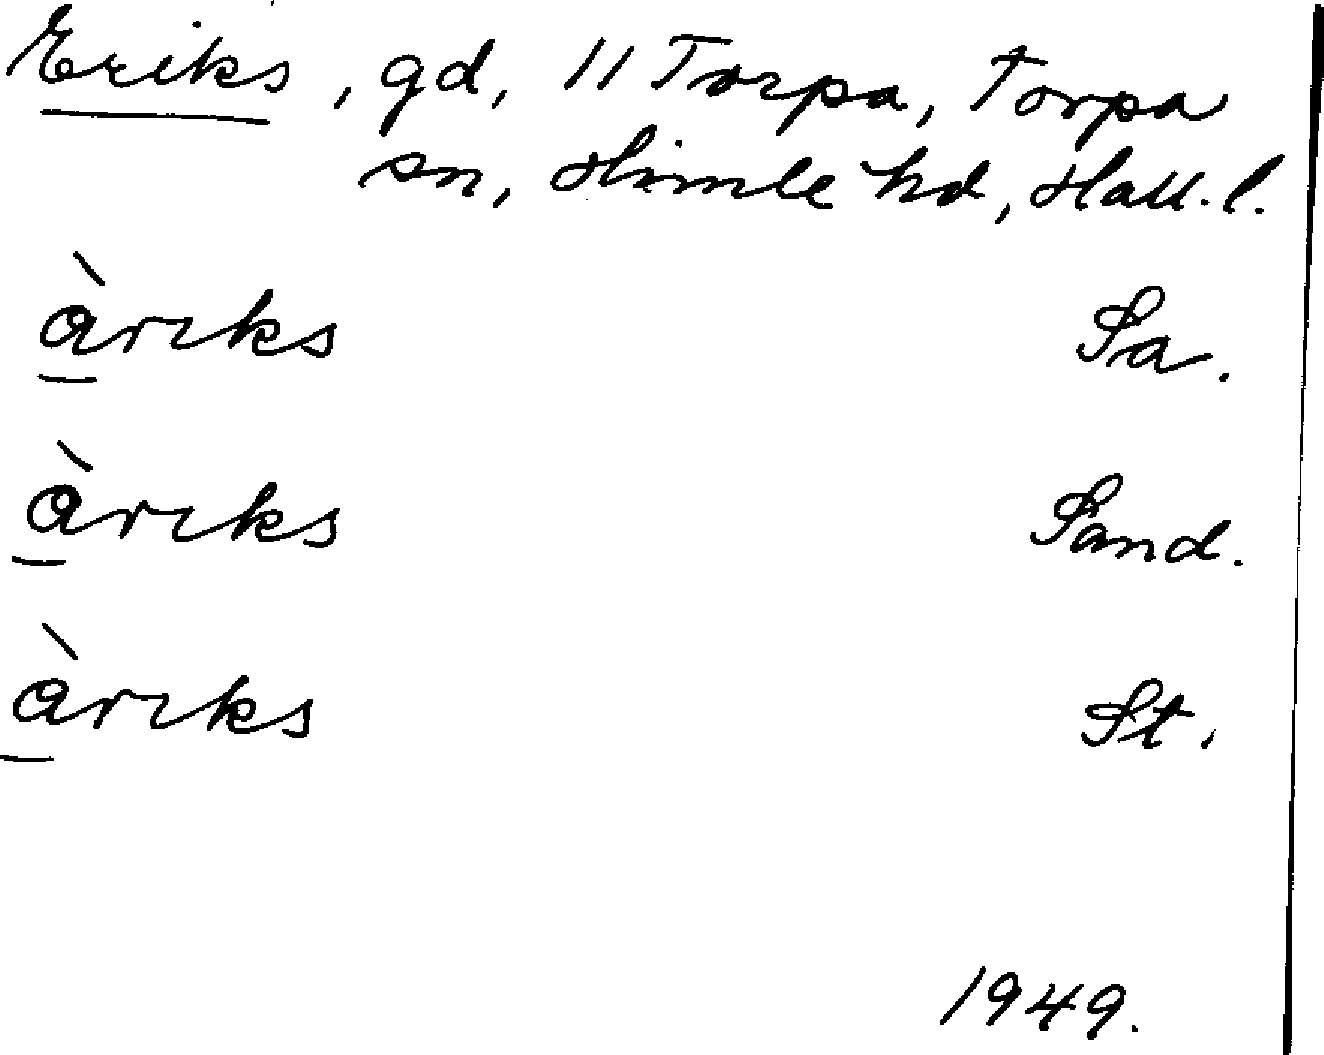 Eriks, gd, 11 Torpa, Torpa
sn, Himle hd, Hall. l.
àrıks Sa.
àrıks Sand.
àrıks St.
1949.